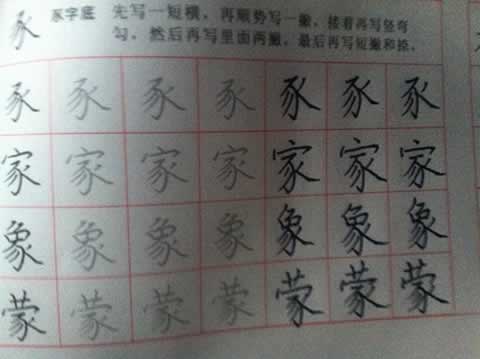 豕 豕字底 先写一短横，再顺势写一撇，接着再写竖弯
勾，然后再写里面两撇，最后再写短撇和捺。
豕 豕 豕 豕 豕 豕 豕
家 家 家 家 家 家 家
象 象 象 象 象 象 象
蒙 蒙 蒙 蒙 蒙 蒙 蒙